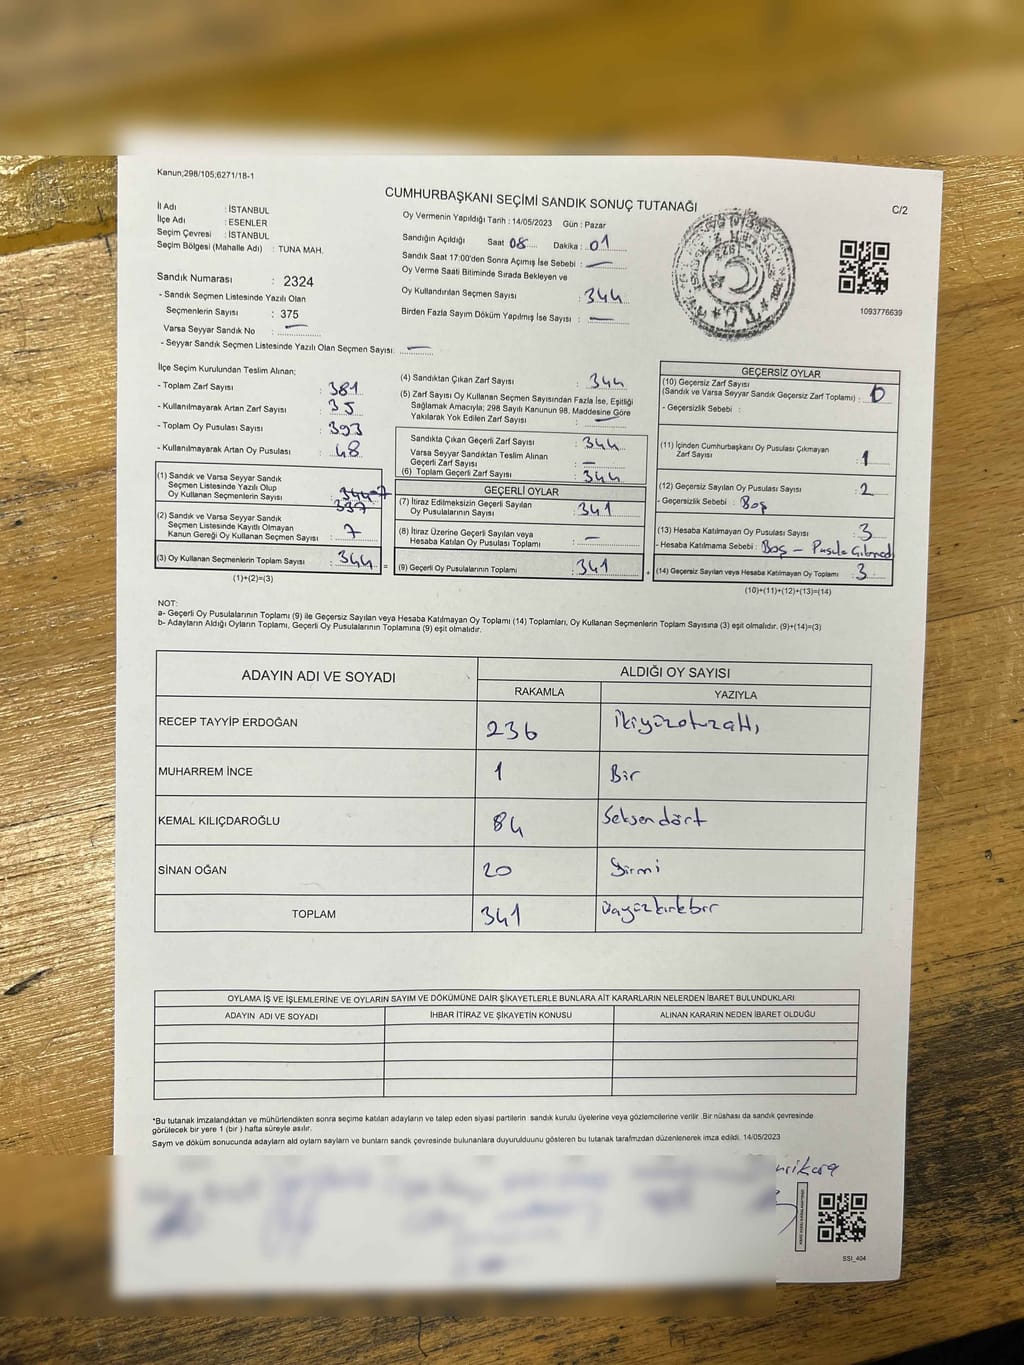 Kanun;298/105;6271/18-1
CUMHURBAŞKANI SEÇİMİ SANDIK SONUÇ TUTANAĞI
C/2
İl Adı : İSTANBUL
İlçe Adı : ESENLER
Seçim Çevresi : İSTANBUL
Seçim Bölgesi (Mahalle Adı) : TUNA MAH.
Sandık Numarası : 2324
- Sandık Seçmen Listesinde Yazılı Olan
Seçmenlerin Sayısı : 375
Varsa Seyyar Sandık No : —
- Seyyar Sandık Seçmen Listesinde Yazılı Olan Seçmen Sayısı: —
Oy Vermenin Yapıldığı Tarih : 14/05/2023 Gün : Pazar
Sandığın Açıldığı Saat 08 Dakika : 01
Sandık Saat 17:00'den Sonra Açımış İse Sebebi : —
Oy Verme Saati Bitiminde Sırada Bekleyen ve
Oy Kullandırılan Seçmen Sayısı : 344
Birden Fazla Sayım Döküm Yapılmış İse Sayısı : —
1093776639
İlçe Seçim Kurulundan Teslim Alınan;
- Toplam Zarf Sayısı : 381
- Kullanılmayarak Artan Zarf Sayısı : 35
- Toplam Oy Pusulası Sayısı : 393
- Kullanılmayarak Artan Oy Pusulası : 48
(1) Sandık ve Varsa Seyyar Sandık
Seçmen Listesinde Yazılı Olup
Oy Kullanan Seçmenlerin Sayısı : 344-7
337
(2) Sandık ve Varsa Seyyar Sandık
Seçmen Listesinde Kayıtlı Olmayan
Kanun Gereği Oy Kullanan Seçmen Sayısı : 7
(3) Oy Kullanan Seçmenlerin Toplam Sayısı : 344 =
(1)+(2)=(3)
(4) Sandıktan Çıkan Zarf Sayısı : 344
(5) Zarf Sayısı Oy Kullanan Seçmen Sayısından Fazla İse, Eşitliği
Sağlamak Amacıyla; 298 Sayılı Kanunun 98. Maddesine Göre
Yakılarak Yok Edilen Zarf Sayısı : —
Sandıkta Çıkan Geçerli Zarf Sayısı : 344
Varsa Seyyar Sandıktan Teslim Alınan
Geçerli Zarf Sayısı : —
(6) Toplam Geçerli Zarf Sayısı : 344
GEÇERLİ OYLAR
(7) İtiraz Edilmeksizin Geçerli Sayılan
Oy Pusulalarının Sayısı : 341
(8) İtiraz Üzerine Geçerli Sayılan veya
Hesaba Katılan Oy Pusulası Toplamı : —
(9) Geçerli Oy Pusulalarının Toplamı : 341 +
GEÇERSİZ OYLAR
(10) Geçersiz Zarf Sayısı
(Sandık ve Varsa Seyyar Sandık Geçersiz Zarf Toplamı) : 0
- Geçersizlik Sebebi :
(11) İçinden Cumhurbaşkanı Oy Pusulası Çıkmayan
Zarf Sayısı : 1
(12) Geçersiz Sayılan Oy Pusulası Sayısı : 2
- Geçersizlik Sebebi : Boş
(13) Hesaba Katılmayan Oy Pusulası Sayısı : 3
- Hesaba Katılmama Sebebi : Boş – Pusula Çıkmadı
(14) Geçersiz Sayılan veya Hesaba Katılmayan Oy Toplamı : 3
(10)+(11)+(12)+(13)=(14)
NOT:
a- Geçerli Oy Pusulalarının Toplamı (9) ile Geçersiz Sayılan veya Hesaba Katılmayan Oy Toplamı (14) Toplamları, Oy Kullanan Seçmenlerin Toplam Sayısına (3) eşit olmalıdır. (9)+(14)=(3)
b- Adayların Aldığı Oyların Toplamı, Geçerli Oy Pusulalarının Toplamına (9) eşit olmalıdır.
ADAYIN ADI VE SOYADI
ALDIĞI OY SAYISI
RAKAMLA YAZIYLA
RECEP TAYYİP ERDOĞAN 236 ikiyüzotuzaltı
MUHARREM İNCE 1 Bir
KEMAL KILIÇDAROĞLU 84 Seksendört
SİNAN OĞAN 20 Yirmi
TOPLAM 341 üçyüzkırkbir
OYLAMA İŞ VE İŞLEMLERİNE VE OYLARIN SAYIM VE DÖKÜMÜNE DAİR ŞİKAYETLERLE BUNLARA AİT KARARLARIN NELERDEN İBARET BULUNDUKLARI
ADAYIN ADI VE SOYADI İHBAR İTİRAZ VE ŞİKAYETİN KONUSU ALINAN KARARIN NEDEN İBARET OLDUĞU
*Bu tutanak imzalandıktan ve mühürlendikten sonra seçime katılan adayların ve talep eden siyasi partilerin sandık kurulu üyelerine veya gözlemcilerine verilir .Bir nüshası da sandık çevresinde
görülecek bir yere 1 (bir ) hafta süreyle asılır.
Saym ve döküm sonucunda adaylarn ald oylarn saylarn ve bunlarn sandk çevresinde bulunanlara duyurulduunu gösteren bu tutanak tarafmzdan düzenlenerek imza edildi. 14/05/2023
SSI_404